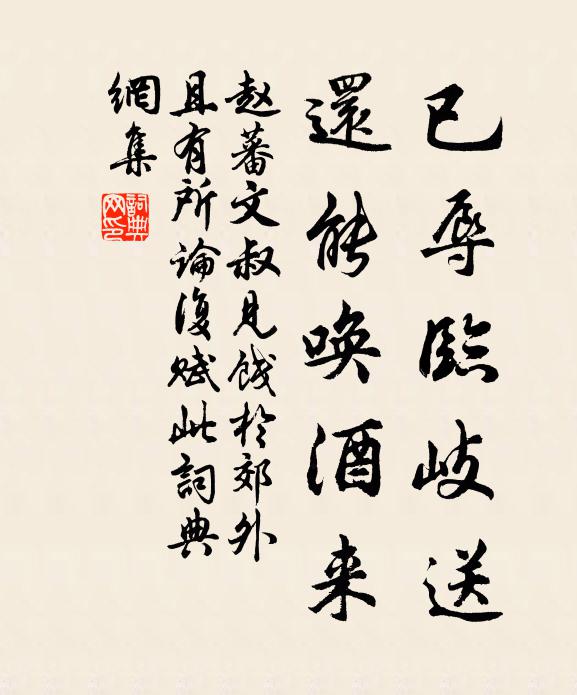 已辱臨歧送
還能喚酒来
赵蕃文叔見餞於郊外
且有所論復賦此詞典
網集
詞典网印